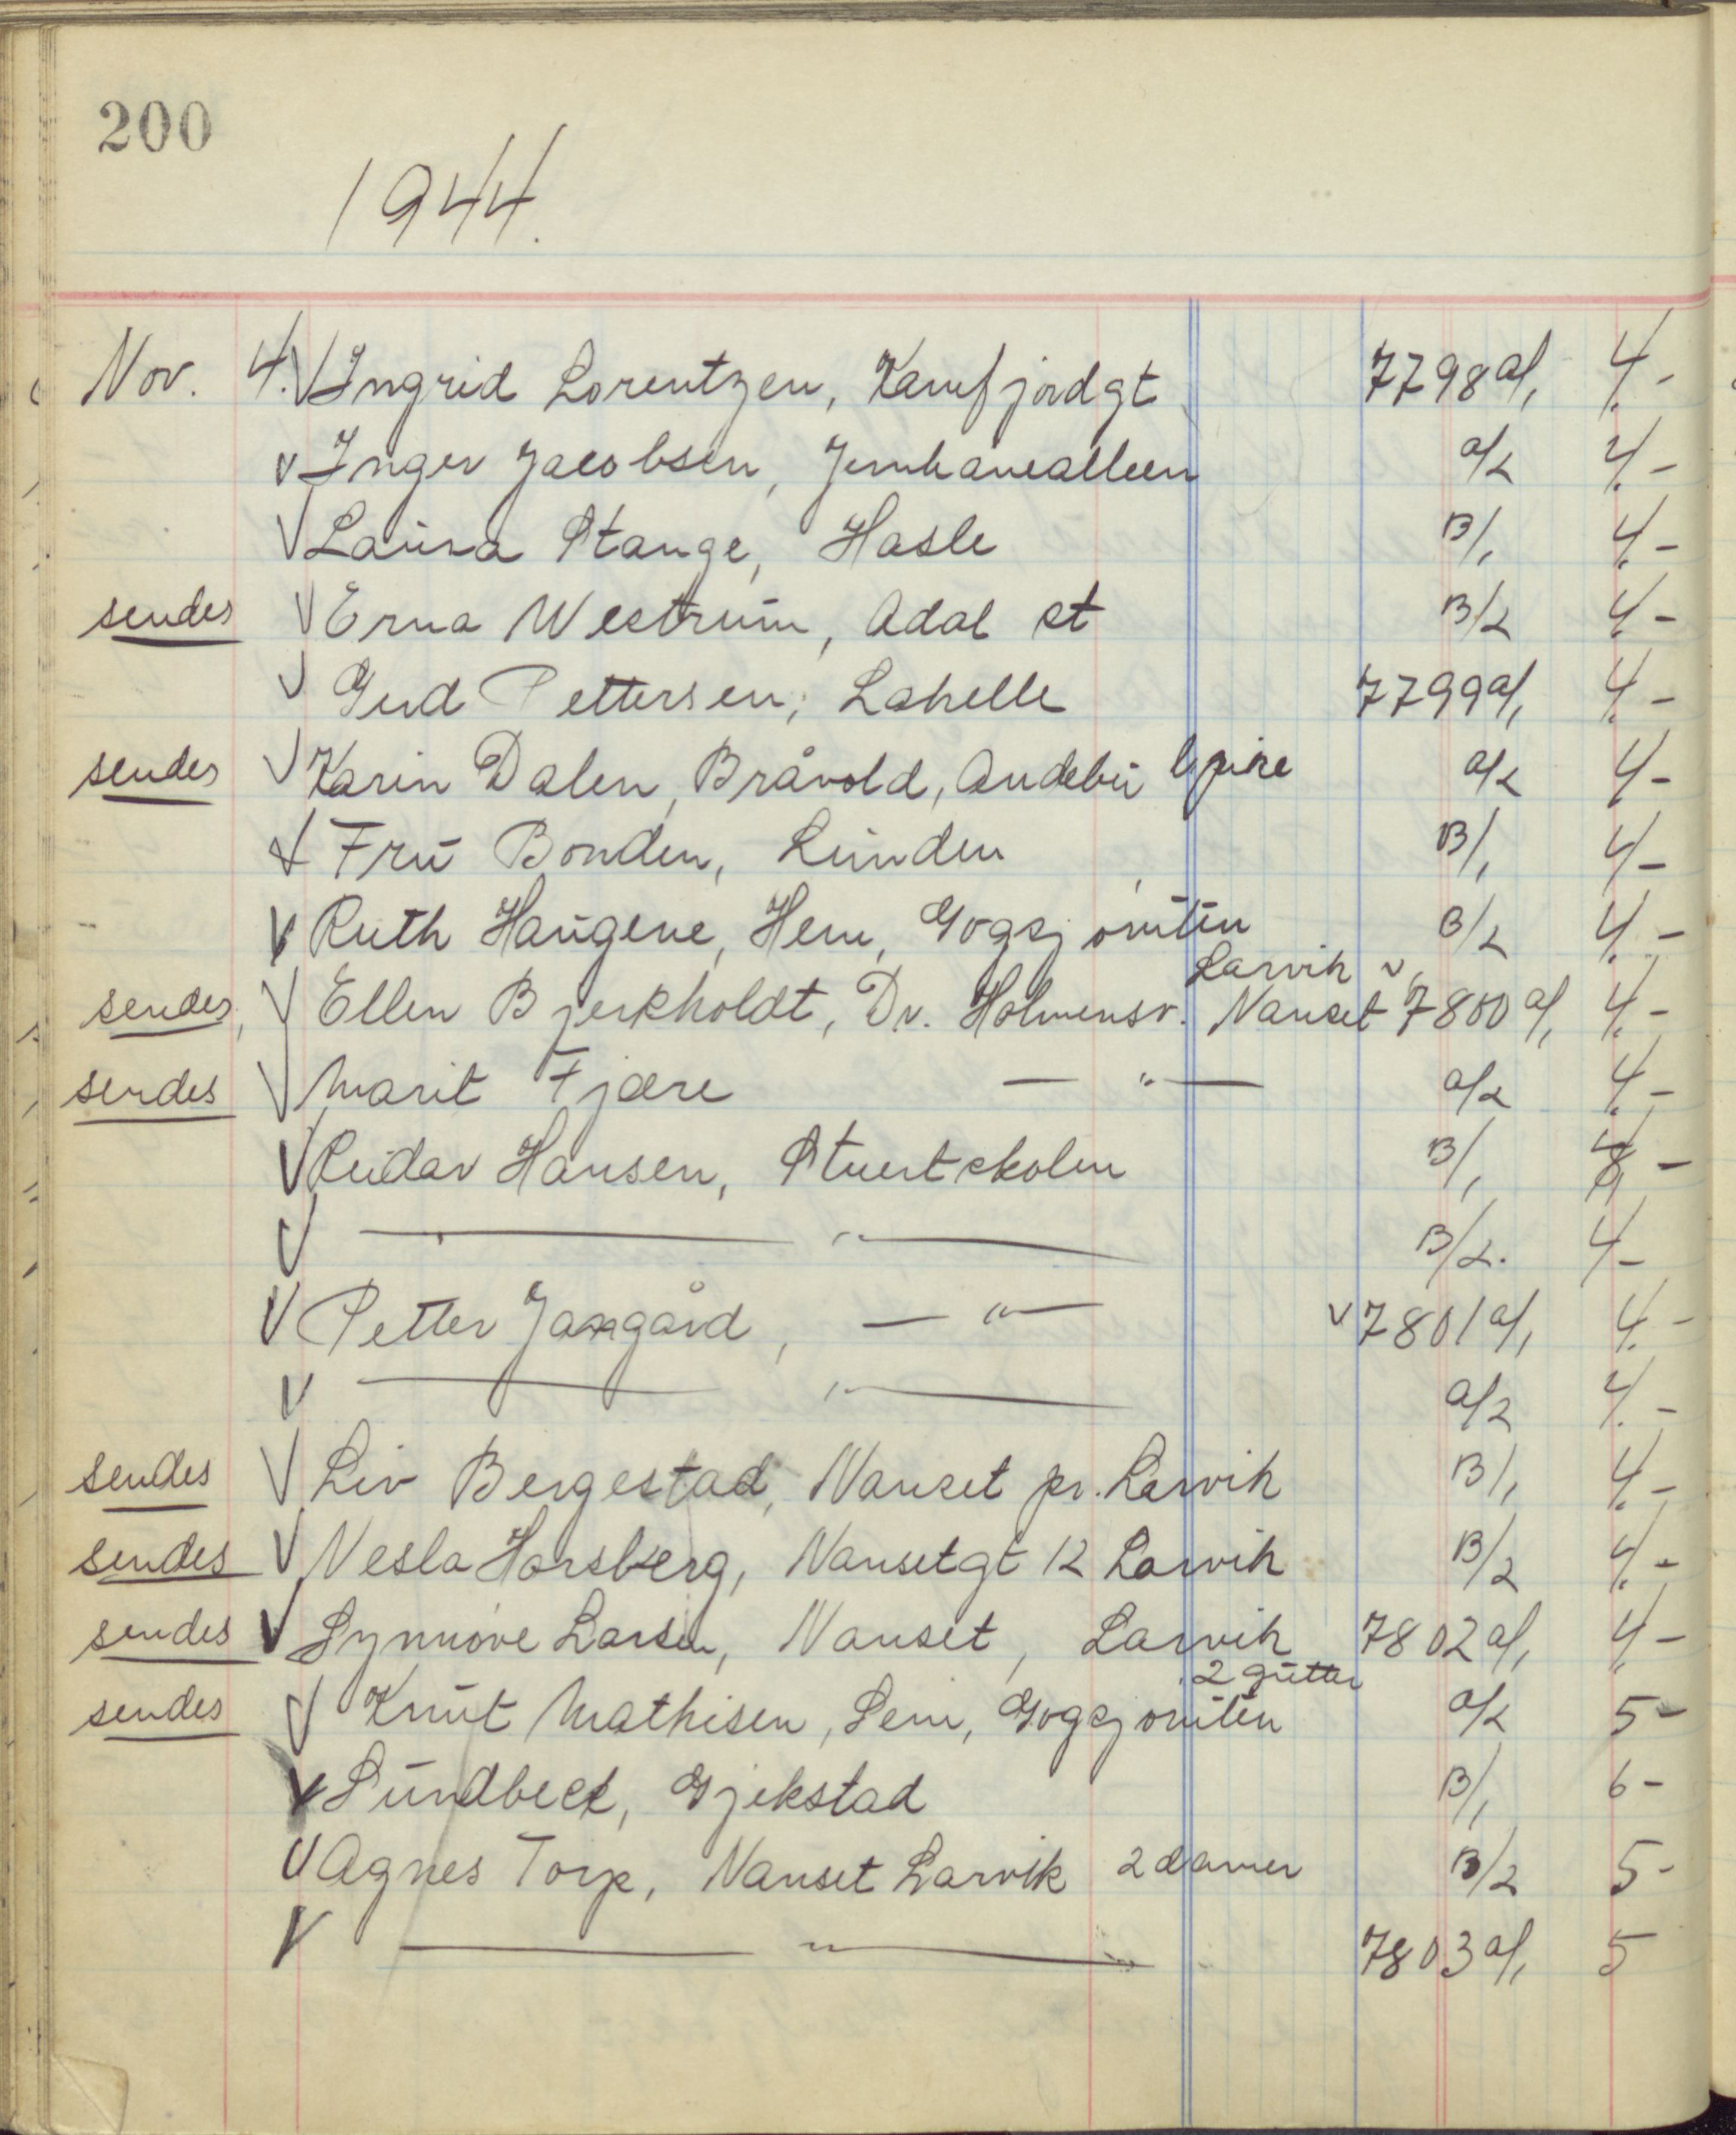 200
1944.
Nov. 4. V Ingrid Lorentzen, Kamfjordgt 7798 a/1 4.-
V Inger Jacobsen, Jernbanealleen a/2 4.-
V Laura Stange, Hasle B/1 4.-
sendes V Erna Westrum, Adal st B/2 4.-
V Gerd Pettersen, Lahelle 7799 a/1 4.-
sendes V Karin Dalen, Bråvold, Andebu a/2 4-
V Fru Bonden, Lunden B/1 4-
V Ruth Haugene, Hem, Gogsjøruten B/2 4.-
Larvik v
sendes, V Ellen Bjerkholdt, Dr. Holmensv. Nanset 7800 a/1 4.-
sendes V Marit Fjære — " — a/2 4.-
V Reidar Hansen, Stuertskolen B/1 4-
V — " — B/2. 4-
V Petter Jangård, — " — v 7801 a/1 4.-
V — " — a/2 4.-
sendes V Liv Bergestad, Nanset pr. Larvik B/1 4.-
sendes V Nesla Horsberg, Nansetgt 12 Larvik B/2 4.-
sendes V Synnøve Larsen, Nanset, Larvik 7802 a/1 4-
2 gutter
sendes V Knut Mathisen, Sem, Gogsjøruten a/2 5-
V Sundbect, Gjekstad B/1 6-
V Agnes Torp, Nanset Larvik 2 damer B/2 5-
V — " — 7803 a/1 5